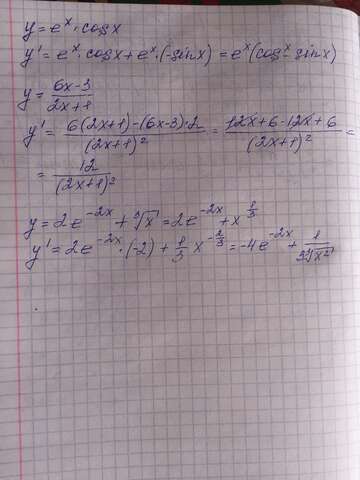 y = e^x · cosx
y' = e^x · cosx + e^x · (-sinx) = e^x (cos^x - sinx)
y = (6x-3)/(2x+1)
y' = (6(2x+1) - (6x-3)·2)/(2x+1)^2 = (12x+6-12x+6)/(2x+1)^2 =
= 12/(2x+1)^2
y = 2e^(-2x) + ∛x = 2e^(-2x) + x^(1/3)
y' = 2e^(-2x) · (-2) + 1/3 x^(-2/3) = -4e^(-2x) + 1/(3∛(x^2))